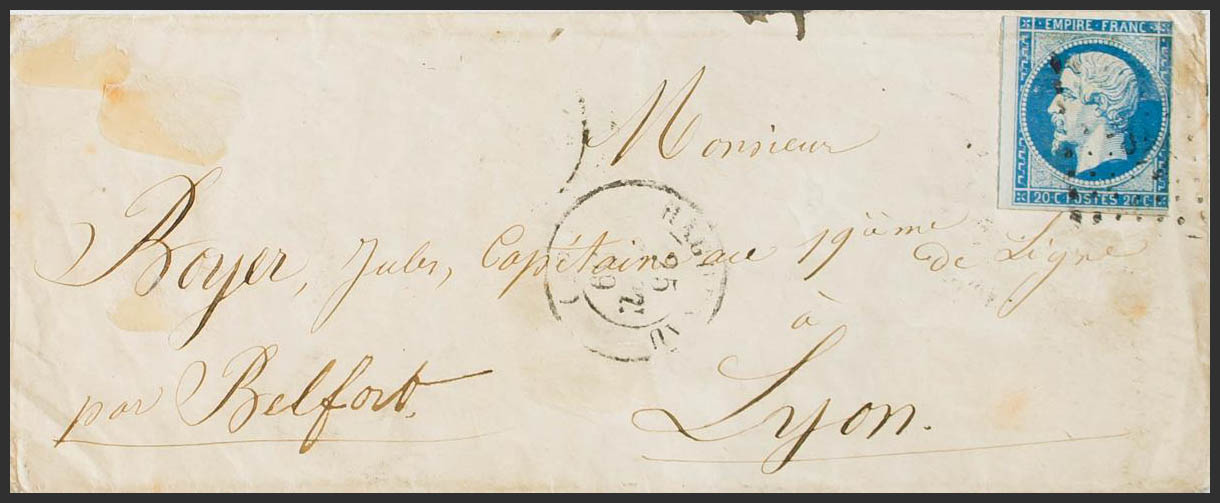 EMPIRE FRANC
20 C POSTES 20 C
Monsieur
Boyer, Jules, Capitaine au 19ième de Ligne
à
Lyon.
par Belfort.
25